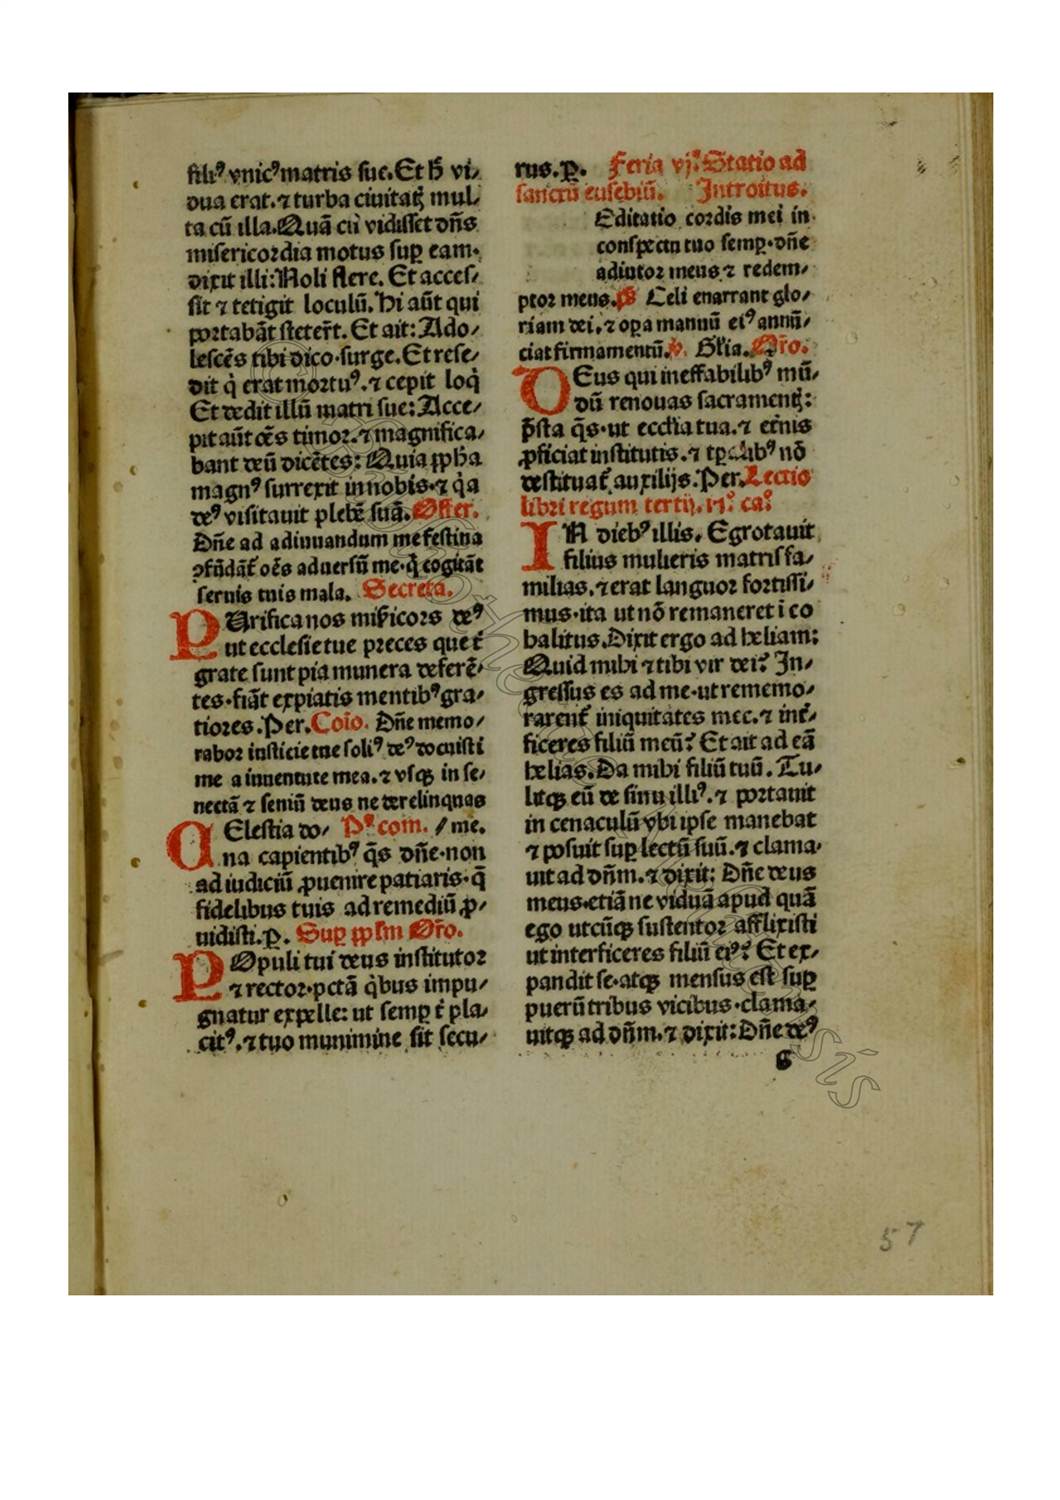 filiꝰ vnicꝰ matris sue. Et h̄ vi⸗
dua erat. ⁊ turba ciuitatꝭ mul⸗
ta cū illa. Quā cū vidisset dn̄s
misericordia motus suꝑ eam.
dixit illi: Noli flere. Et acces⸗
sit ⁊ tetigit loculū. Hi aūt qui
portabāt stetert̄. Et ait: Ado⸗
lescēs tibi dico surge. Et rese⸗
dit q̇ erat mortuꝰ. ⁊ cepit loq̇
Et dedit illū matri sue: Acce⸗
pit aūt oēs timor. ⁊ magnifica⸗
bant deū dicētes: Quia ꝓph̄a
magnꝰ surrexit in nobis. ⁊ q̇a
deꝰ visitauit plebē suā. Offer.
Dn̄e ad adiuuandum me festina
ꝯfūdāt̄ oēs aduersū me. q̇ cogitāt
seruis tuis mala. Secreta.
PUrifica nos mīcors deꝰ
ut ecclesie tue preces que t̄
grate sunt pia munera deferē⸗
tes. fiāt expiatis mentibꝰ gra⸗
tiores. Per. Coīo. Dn̄e memo⸗
rabor iusticie tue soliꝰ deꝰ docuisti
me a iuuentute mea. ⁊ vsqꝫ in se⸗
nectā ⁊ seniū deus ne derelinquas
CElestia do⸗ Pꝰ com. / me.
na capientibꝰ q̄s dn̄e. non
ad iudiciū ꝓuenire patiaris. q̄
fidelibus tuis ad remediū ꝓ⸗
uidisti. ꝑ. Suꝑ ꝓplm Or̄o.
POpuli tui deus institutor
⁊ rector. pctā q̇bus impu⸗
gnatur expelle: ut semꝑ t̄ pla⸗
citꝰ. ⁊ tuo munimine sit secu⸗
rus. ꝑ. Feria vj. Statio ad
sanctū eusebiū. Introitus.
Editatio cordis mei in
conspectu tuo semꝑ. dn̄e
adiutor meus ⁊ redem⸗
ptor meus. ps Celi enarrant glo⸗
riam dei. ⁊ oꝑa manuū eiꝰ annū⸗
ciat firmamentū. v. Gl̄ia. Or̄o.
DEus qui ineffabilibꝰ mū⸗
dū renouas sacramentꝭ:
p̄sta q̄s. ut ecclīa tua. ⁊ et̄nis
ꝓficiat institutis. ⁊ tꝑalibꝰ nō
destituat̄ auxilijs. Per. Lectio
libri regum tertij. 17. ca.
IN diebꝰ illis. Egrotauit
filius mulieris matris fa⸗
milias. ⁊ erat languor fortissi⸗
mus. ita ut nō remaneret ī eo
halitus. Dixit ergo ad heliam:
Quid mihi ⁊ tibi vir dei? In⸗
gressus es ad me. ut rememo⸗
rarent̄ iniquitates mee. ⁊ int̄⸗
ficeres filiū meū? Et ait ad eā
helias. Da mihi filiū tuū. Tu⸗
litqꝫ eū de sinu illiꝰ. ⁊ portauit
in cenaculū vbi ipse manebat
⁊ posuit suꝑ lectū suū. ⁊ clama⸗
uit ad dn̄m. ⁊ dixit: Dn̄e deus
meus. etiā ne viduā apud quā
ego utcūqꝫ sustentor afflixisti
ut interficeres filiū eiꝰ? Et ex⸗
pandit se. atqꝫ mensus est suꝑ
puerū tribus vicibus. clama⸗
uitqꝫ ad dn̄m. ⁊ dixit: Dn̄e deꝰ
g
57